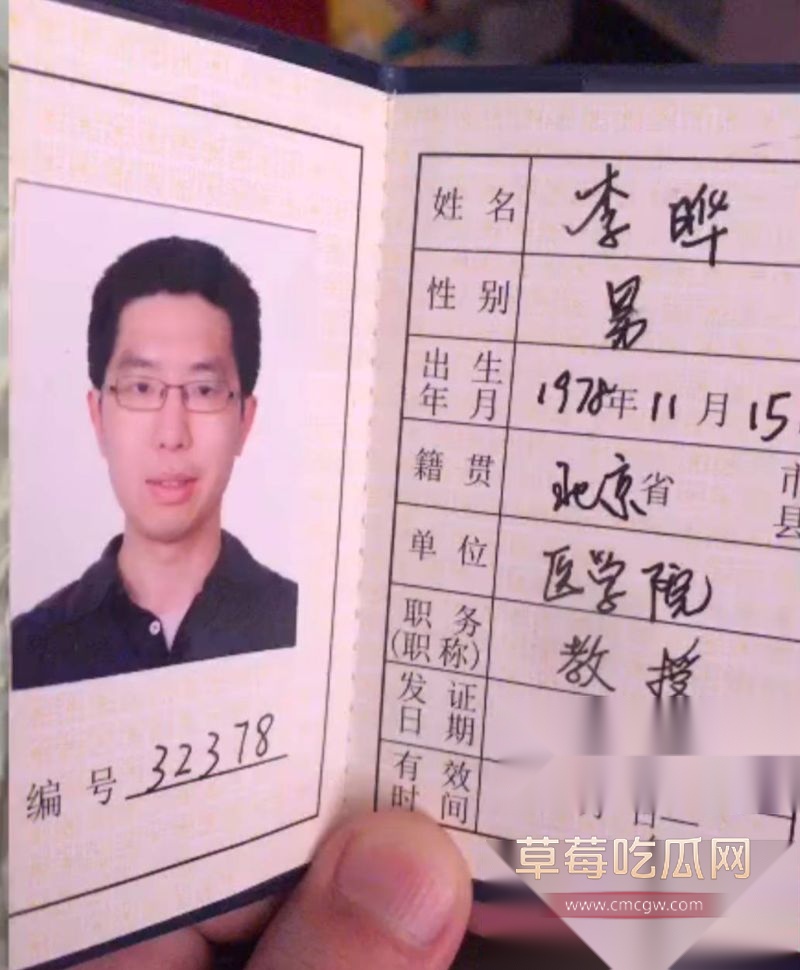 编 号 32378
姓 名 李晔
性 别 男
出 生
年 月 1978年11月15
籍 贯 北京省 市
县
单 位 医学院
职 务
(职 称) 教授
发 证
日 期
有 效
时 间
草莓吃瓜网
www.cmcgw.com